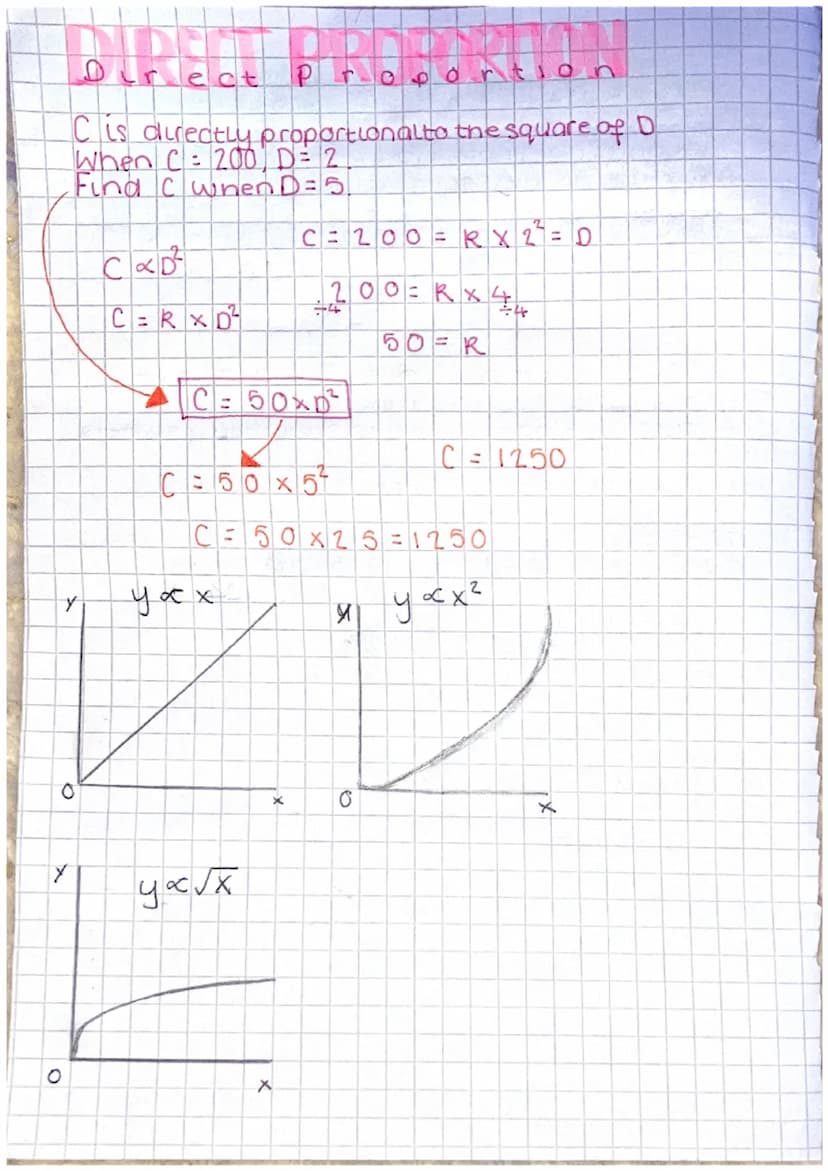 DIRECT PROPORTION
Direct Proportion
C is directly proportional to the square of D
When C = 200, D = 2.
Find C when D = 5.
C = 200 = R × 2² = D
C ∝ D²
÷4 200 = R × 4 ÷4
C = R × D²
50 = R
C = 50 × D²
C = 1250
C = 50 × 5²
C = 50 × 25 = 1250
y y ∝ x
y y ∝ x²
0 x
0 x
y y ∝ √x
0 x